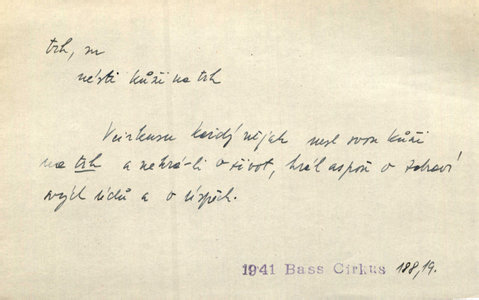 trh, m
nésti kůži na trh
V cirkusu každý nějak nesl svou kůži
na trh a nehrál-li o život, hrál aspoň o zdraví
svých údů a o úspěch.
1941 Bass Cirkus 188,19.